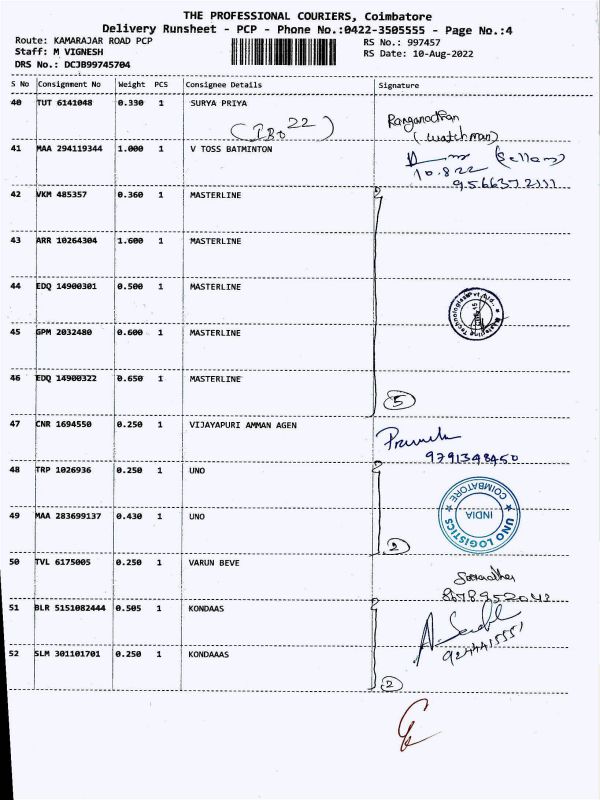 THE PROFESSIONAL COURIERS, Coimbatore
Delivery Runsheet - PCP - Phone No.:0422-3505555 - Page No.:4
Route: KAMARAJAR ROAD PCP
RS No.: 997457
Staff: M VIGNESH
RS Date: 10-Aug-2022
DRS No.: DCJB99745704
S No Consignment No Weight PCS Consignee Details Signature
40 TUT 6141048 0.330 1 SURYA PRIYA
Ranganathan
(watchman)
41 MAA 294119344 1.000 1 V TOSS BATMINTON
(Sellam)
10.822
9566372111
42 VKM 485357 0.360 1 MASTERLINE
43 ARR 10264304 1.600 1 MASTERLINE
44 EDQ 14900301 0.500 1 MASTERLINE
45 GPM 2032480 0.600 1 MASTERLINE
46 EDQ 14900322 0.650 1 MASTERLINE
5
47 CNR 1694550 0.250 1 VIJAYAPURI AMMAN AGEN
9791348450
48 TRP 1026936 0.250 1 UNO
UNO LOGISTICS ★ COIMBATORE ★
INDIA
49 MAA 283699137 0.430 1 UNO
2
50 TVL 6175005 0.250 1 VARUN BEVE
51 BLR 5151082444 0.505 1 KONDAAS
52 SLM 301101701 0.250 1 KONDAAAS
2